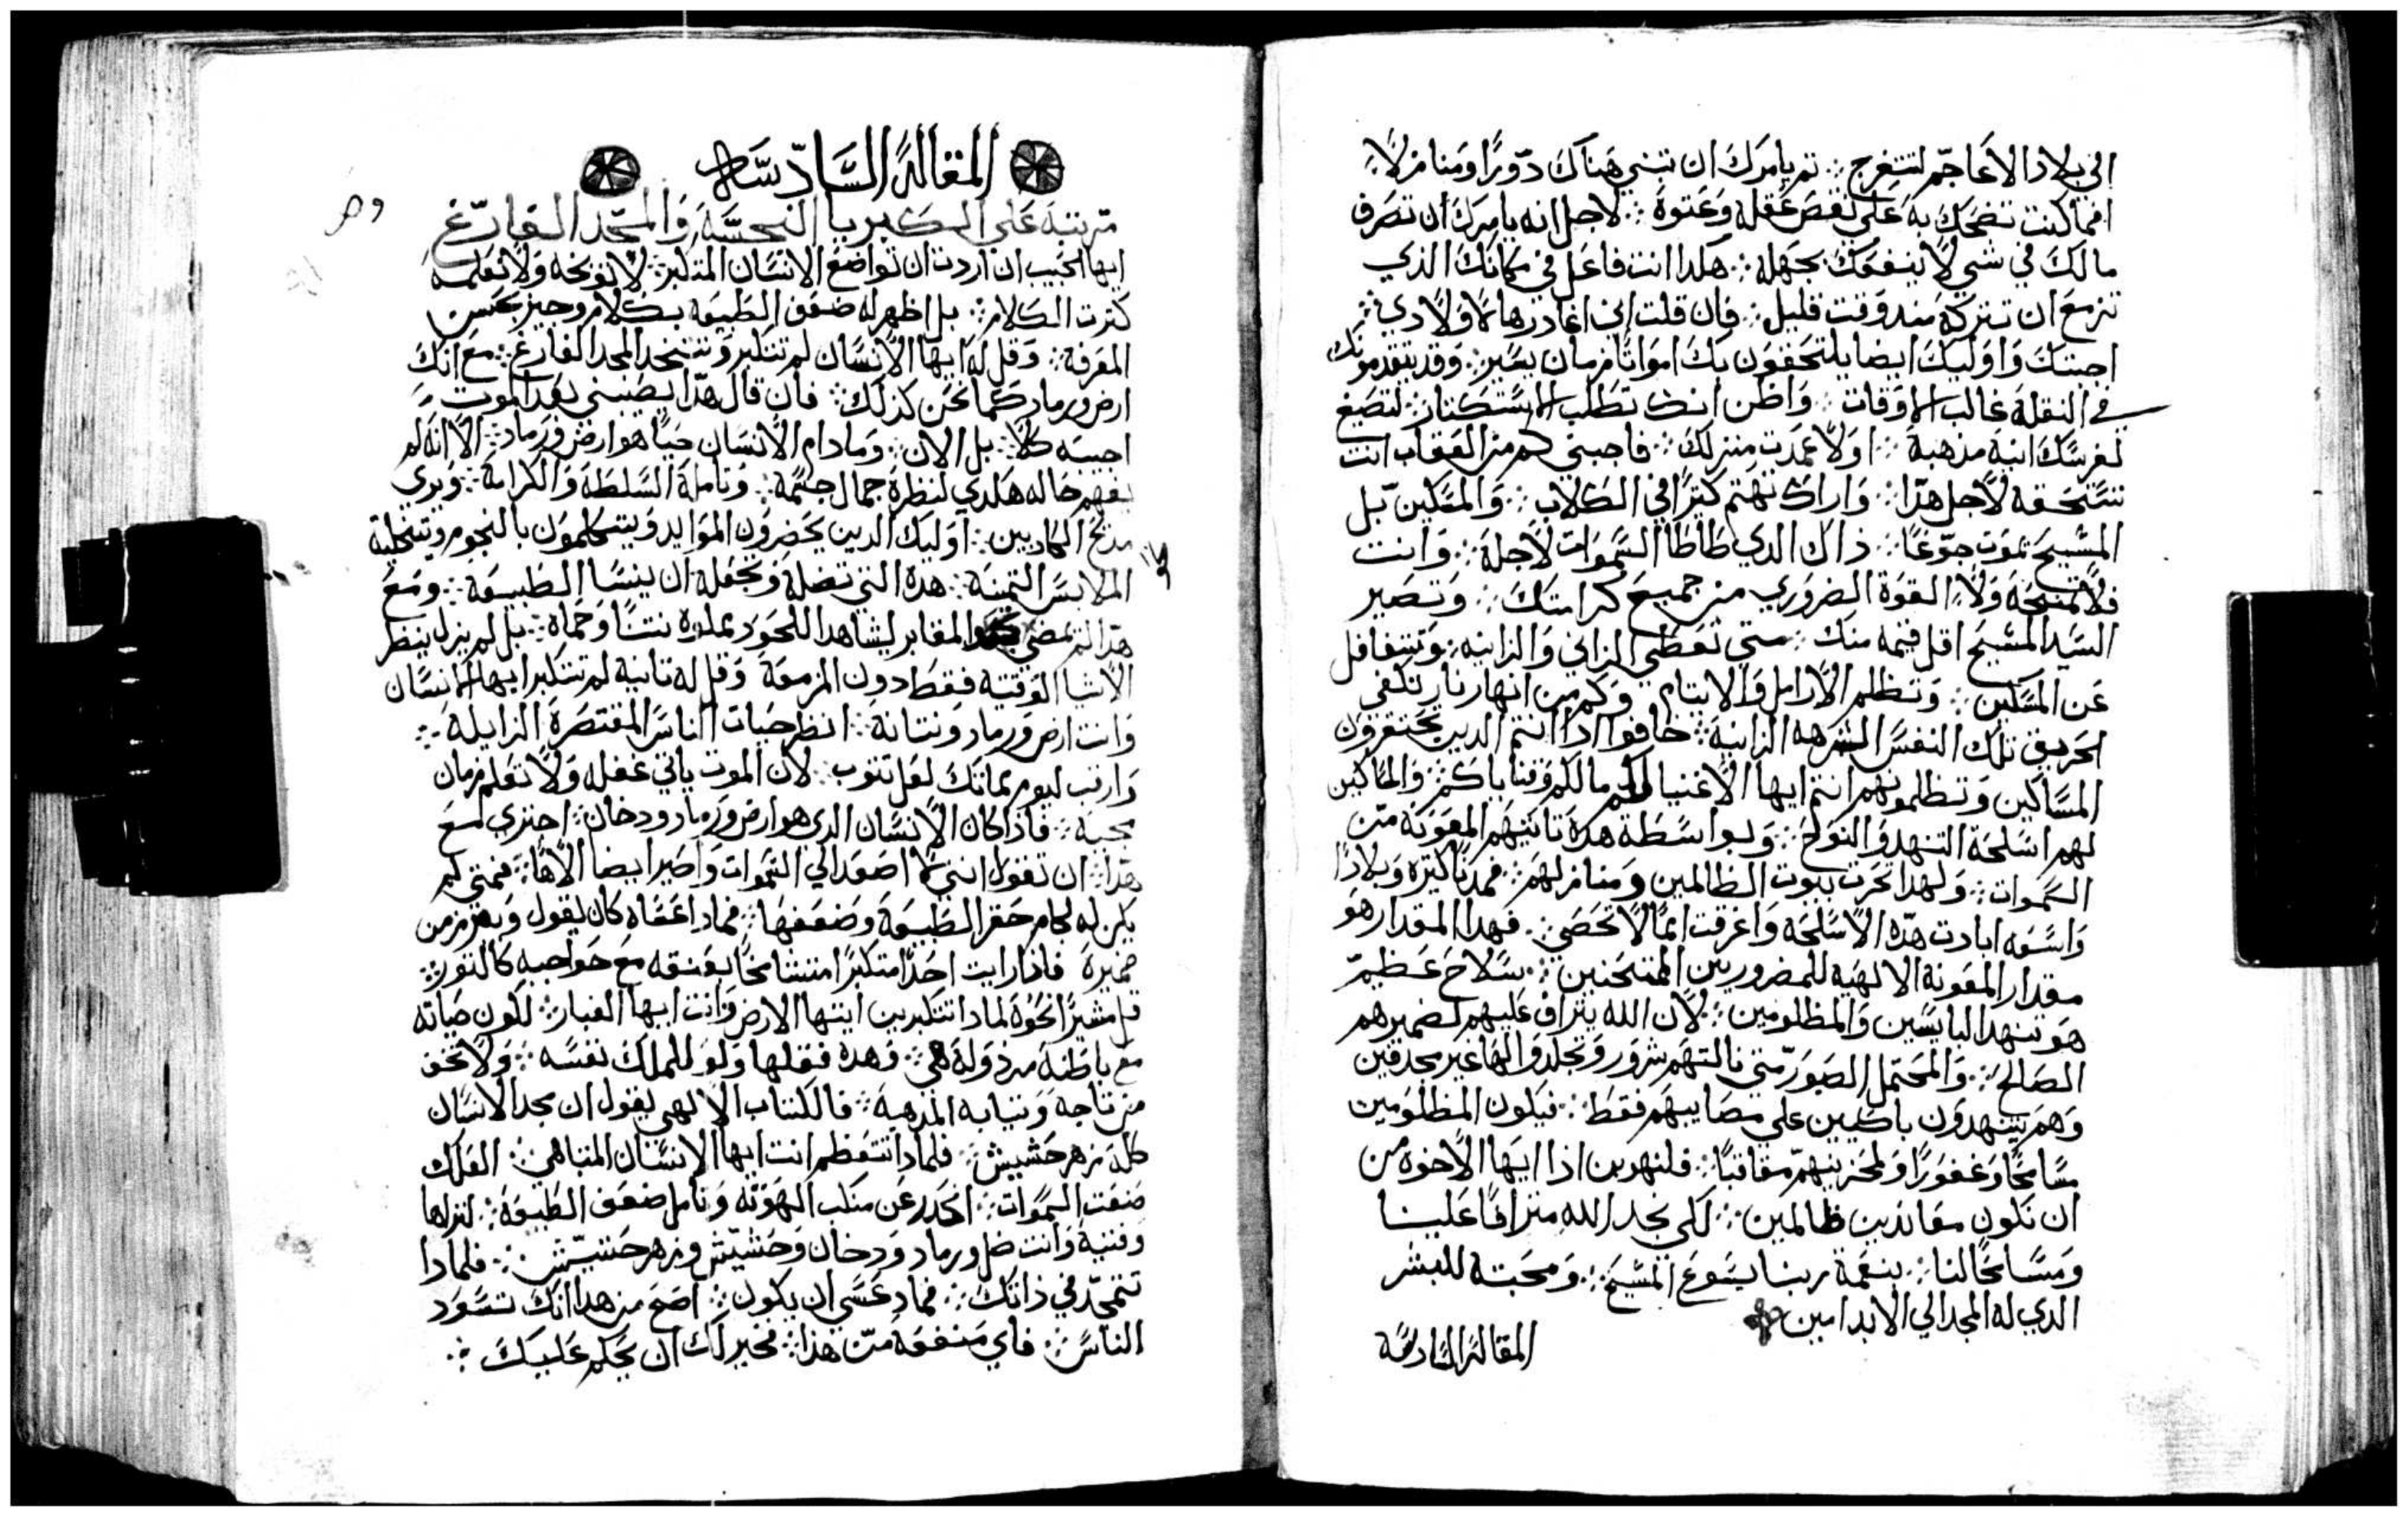 الي بلاد الاعاجم لتتفرج ܀ ثم يامرك ان تبني هناك دورًا ومنازلًا
افما كنت تضحك به علي نقص عقله وعتوه ܀ لاجل انه يامرك ان تصرف
مالك في شي لا ينفعك بجهله ܀ هكدا انت فاعل في مكانك الدي
تزمع ان تتركه مند وقت قليل ܀ فان قلت اني اغادرها لاولادي ܀
اجبتك واوليك ايضا يلتحقون بك امواتا فزمان يسير ܀ وقد يتقدمونك
في النقلة غالب الاوقات ܀ واظن انك تطلب الاستكتار لتصيغ
لفرسك انية مدهبة ܀ اولا عمدت منزلك ܀ فاجبني كم من العقاب انت
تستحقه لاجل هدا ܀ واراك تهتم كثرًا في الكلاب ܀ والمسكين بل
المسيح يموت جوعًا ܀ ذاك الدي طاطا السموات لاجله ܀ وانت
فلا تمنحه ولا القوة الضروري من جميع كرامتك ܀ وتصير
السيد المسيح اقل قيمه منك ܀ متي تعطي الزاني والزانيه وتتغافل
عن المسكين ܀ وتظلم الارامل والايتام وكم من انهار نار تكفي
لحريق تلك النفس الشرهه الزانية ܀ خافوا ادا انتم الدين تحتقرون
المساكين وتظلمونهم انتم ايها الاغنيا لكم مالكم وقنياياكم ܀ والمساكين
لهم اسلحة التنهد والنوح ܀ وبواسطة هده تاتيهم المعونة من
السموات ܀ ولهدا تخرب بيوت الظالمين ومنازلهم ܀ فمدنا كثيرة وبلادا
واسعه ابادت هده الاسلحه واغرقت امما لا تحصي ܀ فهدا المقدار هو
مقدار المعونة الالهيه للمضرورين الممتحنين ܀ سلاح عظيم
هو تنهد البايسين والمظلومين ܀ لان الله يتراف عليهم لضميرهم
الصالح ܀ والمحتمل الصبور متي نالتهم شرور وتجلدوا لها غير مجدفين
وهم يتنهدون باكيين علي مصايبهم فقط ܀ فيكون المظلومين
مسامحًا وغفورًا ولمحزنيهم معاقبًا ܀ فلنهربن اذا ايها الاخوة من
ان نكون معاندين ظالمين ܀ لكي نجد الله متراقًا علينا
ومسامحًا لنا ܀ بنعمة ربنا يسوع المسيح ܀ ومحبته للبشر
الدي له المجد الي الابد امين
المقالة السادسة
المقالة السادسة
مرتبة علي الكبريا النجسة والمجد الفارغ
ايها الحبيب ان اردت ان تواضع الانسان المتكبر ܀ لا توبخه ولا تعلمه
كترت الكلام ܀ بل اظهر له ضعف الطبيعة بكلام وجيز بحسن
المعرفة ܀ وقل له ايها الانسان لم تتكبر وتتخد المجد الفارغ ܀ مع انك
ارض ورماد كما نحن كذلك ܀ فان قال هدا يصيبني بعد الموت
اجيبه كلا ܀ بل الان ܀ وما دام الانسان حيًا هو ارض ورماد ܀ الا انه لم
يفهم حاله هكدي لنظرة جمال جسمه ܀ وتامله السلطة والكرامة ܀ ويري
مدح الكادبين ܀ اوليك الدين يحضرون الموايد ويتكلمون بالنجوم وتتحلية
الملابس التمينة ܀ هده التي تضلة وتجعله ان ينسا الطبيعة ܀ ومع
هدا لم يمضي المقابر ليشاهد اللحود مملوة نتنًا وحماة ܀ بل لم يزل ينظر
الاشيا الوقتية فقط دون المزمعة وقل له تانية لم تتكبر ايها الانسان
وانت ارض ورماد ونتانة ܀ انظر حيات الناس المقتصرة الزايلة ܀
وارتب ليوم مماتك لعل تتوب ܀ لان الموت ياتي غفله ولا تعلم زمان
مجيه ܀ فاذا كان الانسان الدي هو ارض ورماد ودخان ܀ اجتري مع
هدا ܀ ان تقول انني اصعد الي السموات واصير ايضا الاهًا ܀ فمتي لم
يكن له لجام حقر الطبيعة وضعفها ܀ فماداعساه كان يقول ويفرز من
ضميرة فاذا رايت احدًا متكبرًا متشامخًا بعنقه مع حواجبه كالتور ܀
قل مشيرًا نحوه لمادا تتكبرين ايتها الارض وانت ايها الغبار ܀ لكون حياته
مع باطنه مرذولة هي ܀ وهدة فقلها ولو للملك نفسه ܀ ولا تخف
من تاجه وثيابه المدهبة ܀ فالكتاب الالهي يقول ان مجد الانسان
كله زهر حشيش ܀ فلمادا تتعظم انت ايها الانسان المتباهي ܀ الفلك
صنعت السموات ܀ انحدر عن منكب الهوته وتامل ضعف الطبيعة ܀ لتراها
وفنية وانت ظل ورماد ودخان وحشيش وزهر حشيش ܀ فلمادا
تتمجد في ذاتك ܀ فماد عسي ان يكون ܀ اصح من هدا انك تسود
الناس ܀ فاي منفعه من هدا ܀ فخير لك ان يحكم عليك ܀